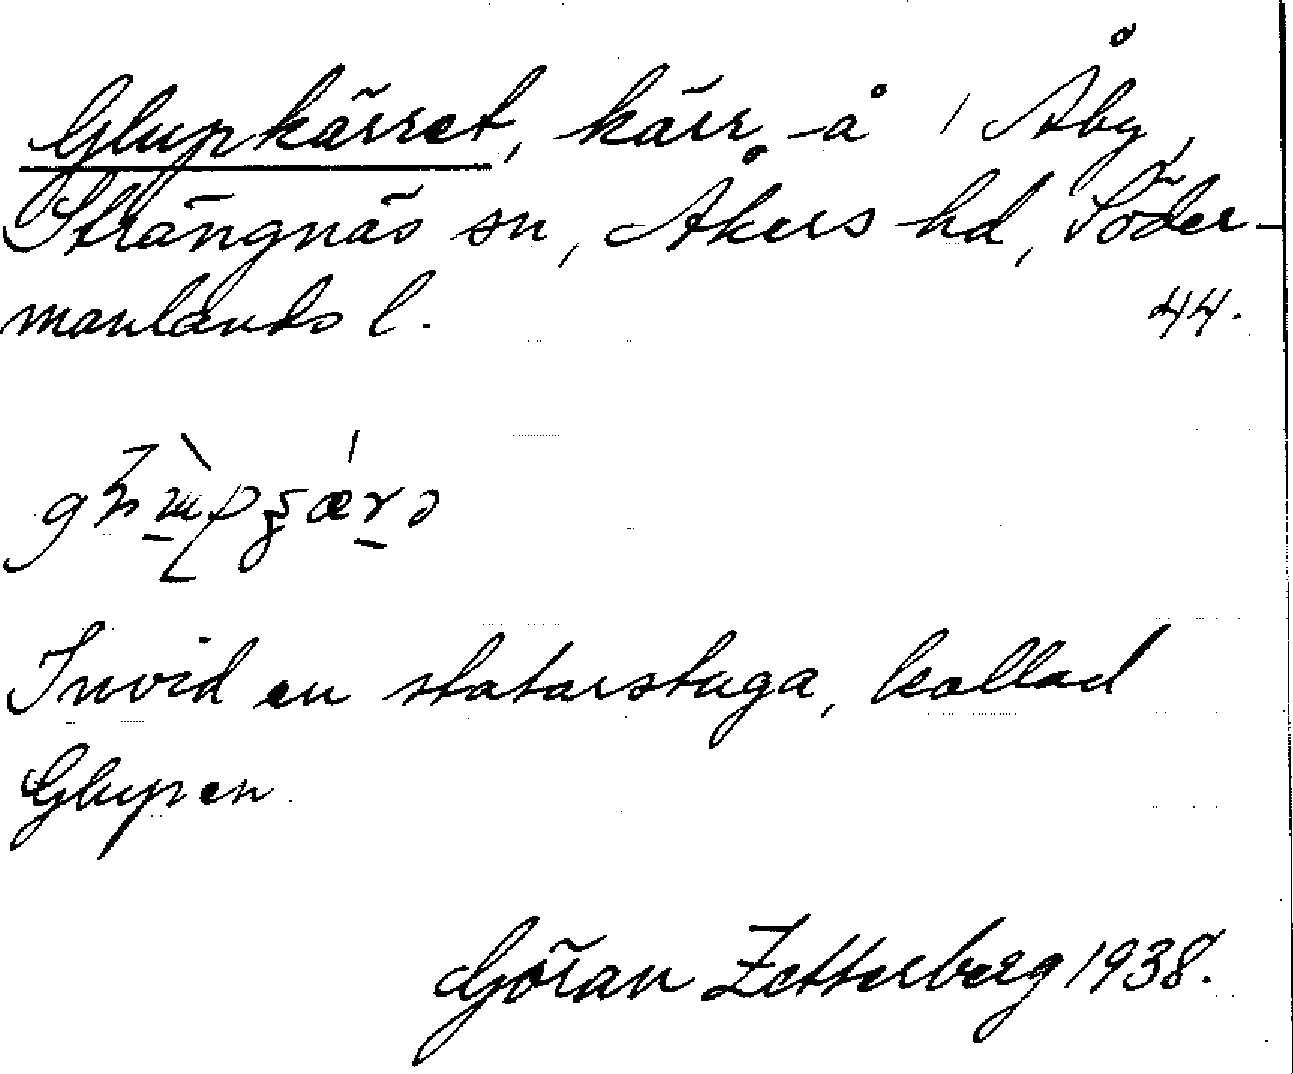 Glupkärret, kärr, å 1 Åby,
Strängnäs sn, Åkers hd, Söder-
manlands l. 44.
Invid en statarstuga, kallad
Glupen.
Göran Zetterberg 1938.